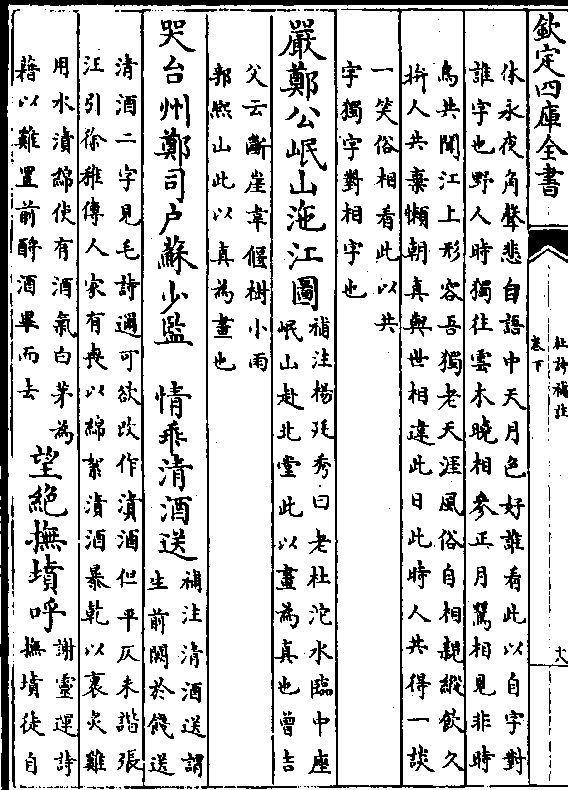 欽定四庫全書
杜詩補註
卷下
十八
休永夜角聲悲自語中天月色好誰看此以自字對
誰字也野人時獨往雲木曉相參正月鶯相見非時
鳥共聞江上形容吾獨老天涯風俗自相親縱飲久
拚人共棄懶朝真與世相違此日此時人共得一談
一笑俗相看此以共
字獨字對相字也
嚴鄭公岷山沱江圖
補注楊廷秀曰老杜沱水臨中座
岷山赴北堂此以畫為真也曾吉
父云斷崖韋偃樹小雨
郭熙山此以真為畫也
哭台州鄭司户蘇少監 情乖清酒送
補注清酒送謂
生前闕於餞送
清酒二字見毛詩邇可欲改作漬酒但平仄未諧張
汪引徐穉傳人家有喪以綿絮漬酒暴乾以裹炙雞
用水漬綿使有酒氣白茅為
藉以雞置前酹酒畢而去
望絕撫墳呼
謝靈運詩
撫墳徒自